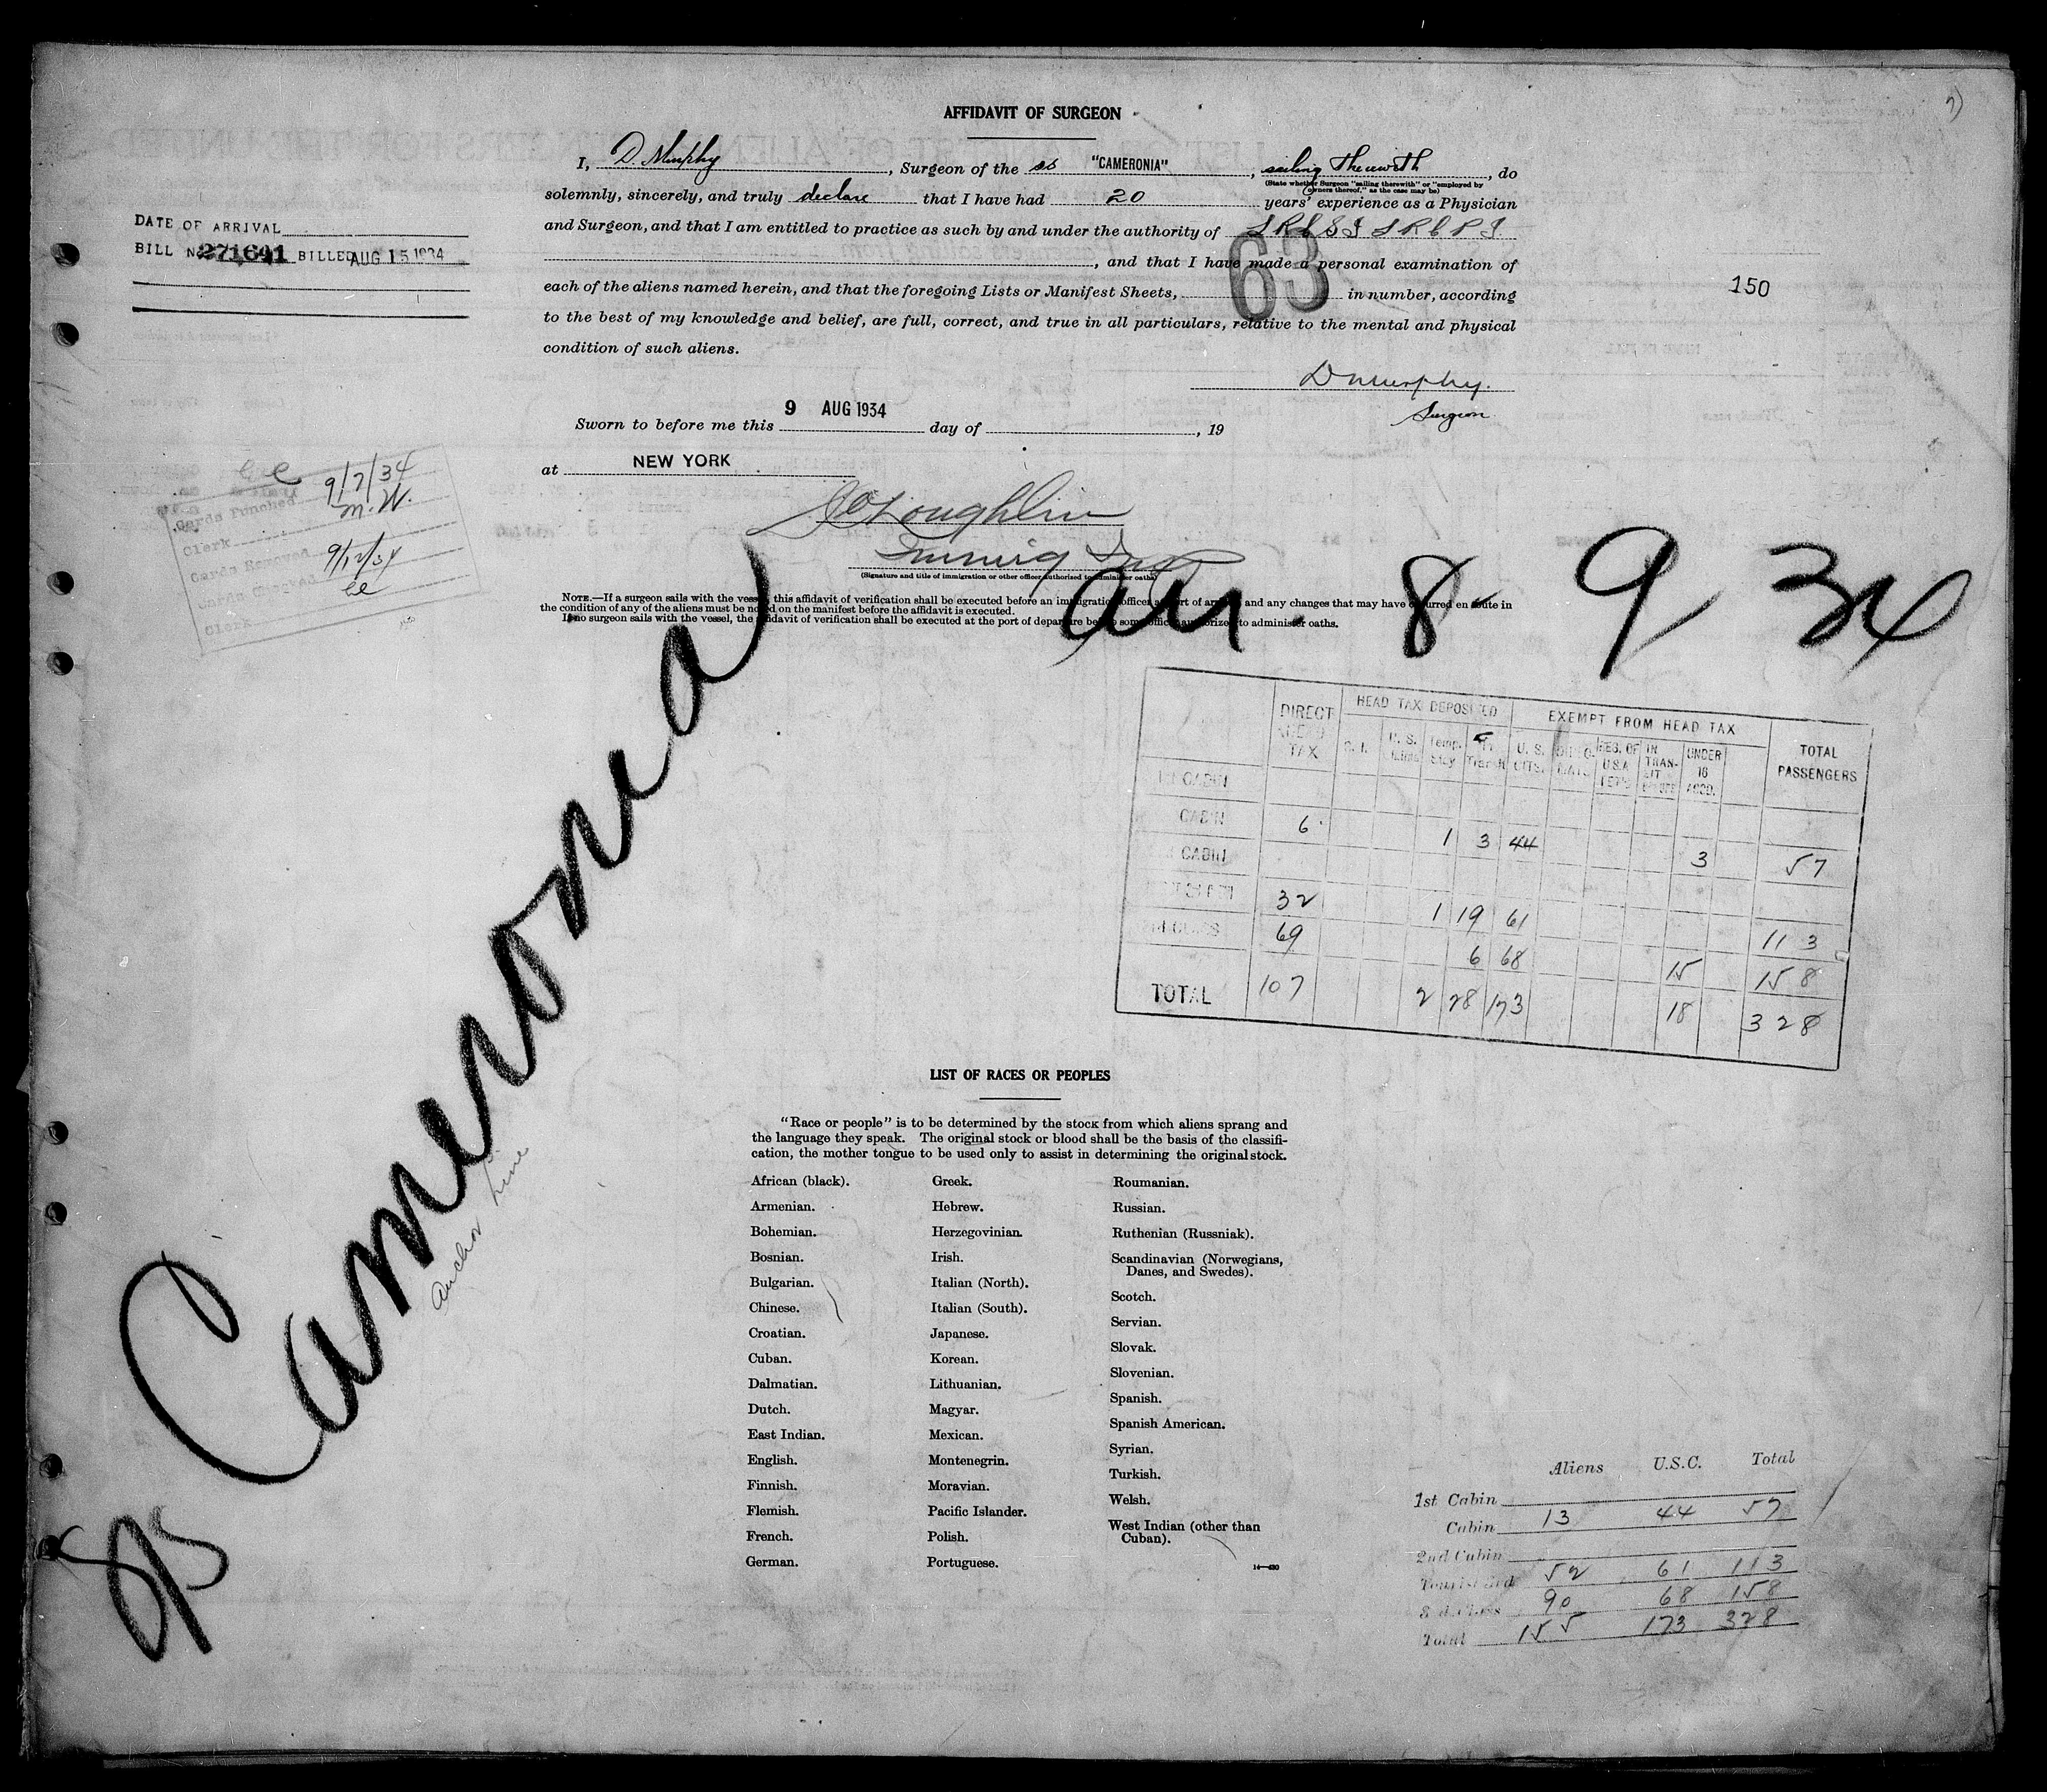 AFFIDAVIT OF SURGEON
I, D. Murphy, Surgeon of the ss "CAMERONIA", sailing therewith, do
(State whether Surgeon "sailing therewith" or "employed by owners thereof," as the case may be)
solemnly, sincerely, and truly declare that I have had 20 years' experience as a Physician
and Surgeon, and that I am entitled to practice as such by and under the authority of
, and that I have made a personal examination of
each of the aliens named herein, and that the foregoing Lists or Manifest Sheets, 63 in number, according
to the best of my knowledge and belief, are full, correct, and true in all particulars, relative to the mental and physical
condition of such aliens.
D Murphy.
Surgeon
Sworn to before me this 9 AUG 1934 day of , 19
at NEW YORK
(Signature and title of immigration or other officer authorized to administer oaths)
NOTE.—If a surgeon sails with the vessel, this affidavit of verification shall be executed before an immigration officer at port of arrival and any changes that may have occurred en route in
the condition of any of the aliens must be noted on the manifest before the affidavit is executed.
If no surgeon sails with the vessel, the affidavit of verification shall be executed at the port of departure before some officer authorized to administer oaths.
DATE OF ARRIVAL
BILL No. 271641 BILLED AUG 15 1934
150
Cards Punched 9/7/34
Clerk M.W.
Cards Removed 9/12/34
Clerk
8 9 34
Cameronia
Anchor Line
DIRECT HEAD TAX
HEAD TAX DEPOSITED
EXEMPT FROM HEAD TAX
TOTAL PASSENGERS
Temp. Stay
U. S. CITS.
IN TRANSIT
UNDER 16 ACCD.
CABIN 6 1 3 44 3 57
32 1 19 61 113
69 6 68 15 158
TOTAL 107 2 28 173 18 328
LIST OF RACES OR PEOPLES
"Race or people" is to be determined by the stock from which aliens sprang and
the language they speak. The original stock or blood shall be the basis of the classifi-
cation, the mother tongue to be used only to assist in determining the original stock.
African (black).
Armenian.
Bohemian.
Bosnian.
Bulgarian.
Chinese.
Croatian.
Cuban.
Dalmatian.
Dutch.
East Indian.
English.
Finnish.
Flemish.
French.
German.
Greek.
Hebrew.
Herzegovinian.
Irish.
Italian (North).
Italian (South).
Japanese.
Korean.
Lithuanian.
Magyar.
Mexican.
Montenegrin.
Moravian.
Pacific Islander.
Polish.
Portuguese.
Roumanian.
Russian.
Ruthenian (Russniak).
Scandinavian (Norwegians,
Danes, and Swedes).
Scotch.
Servian.
Slovak.
Slovenian.
Spanish.
Spanish American.
Syrian.
Turkish.
Welsh.
West Indian (other than
Cuban).
14—430
Aliens U.S.C. Total
1st Cabin
Cabin 13 44 57
2nd Cabin
Tourist 3rd 52 61 113
3rd Class 90 68 158
Total 155 173 328